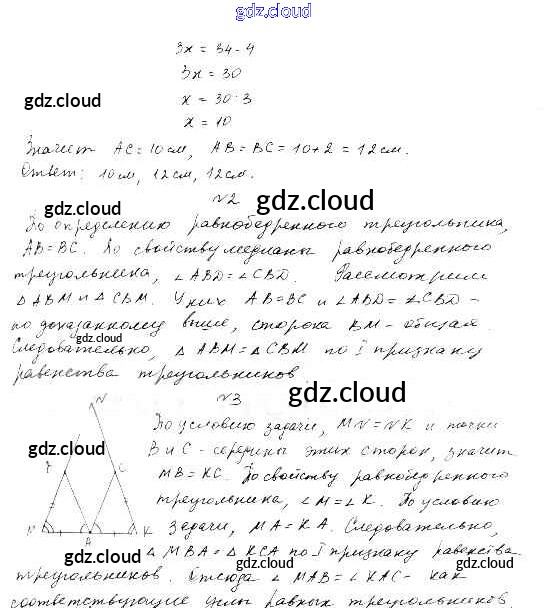 gdz.cloud
3x = 34-4
3x = 30
x = 30:3
gdz.cloud gdz.cloud
x = 10
Значит AC = 10 см, AB = BC = 10+2 = 12 см.
Ответ: 10 см, 12 см, 12 см.
№2 gdz.cloud
По определению равнобедренного треугольника,
AB=BC. По свойству медианы равнобедренного
треугольника, ∠ABD = ∠CBD. Рассмотрим
△ABM и △CBM. У них AB=BC и ∠ABD = ∠CBD –
по доказанному выше, сторона BM – общая.
gdz.cloud
Следовательно, △ABM = △CBM по I признаку
равенства треугольников
gdz.cloud
№3
N
По условию задачи, MN=NK и точки
gdz.cloud
B и C – середины этих сторон, значит
C
MB=KC. По свойству равнобедренного
треугольника, ∠M = ∠K. По условию
gdz.cloud
K
A
задачи, MA=KA. Следовательно,
△MBA = △KCA по I признаку равенства
gdz.cloud gdz.cloud
треугольников. Отсюда ∠MAB = ∠KAC – как
соответствующие углы равных треугольников.